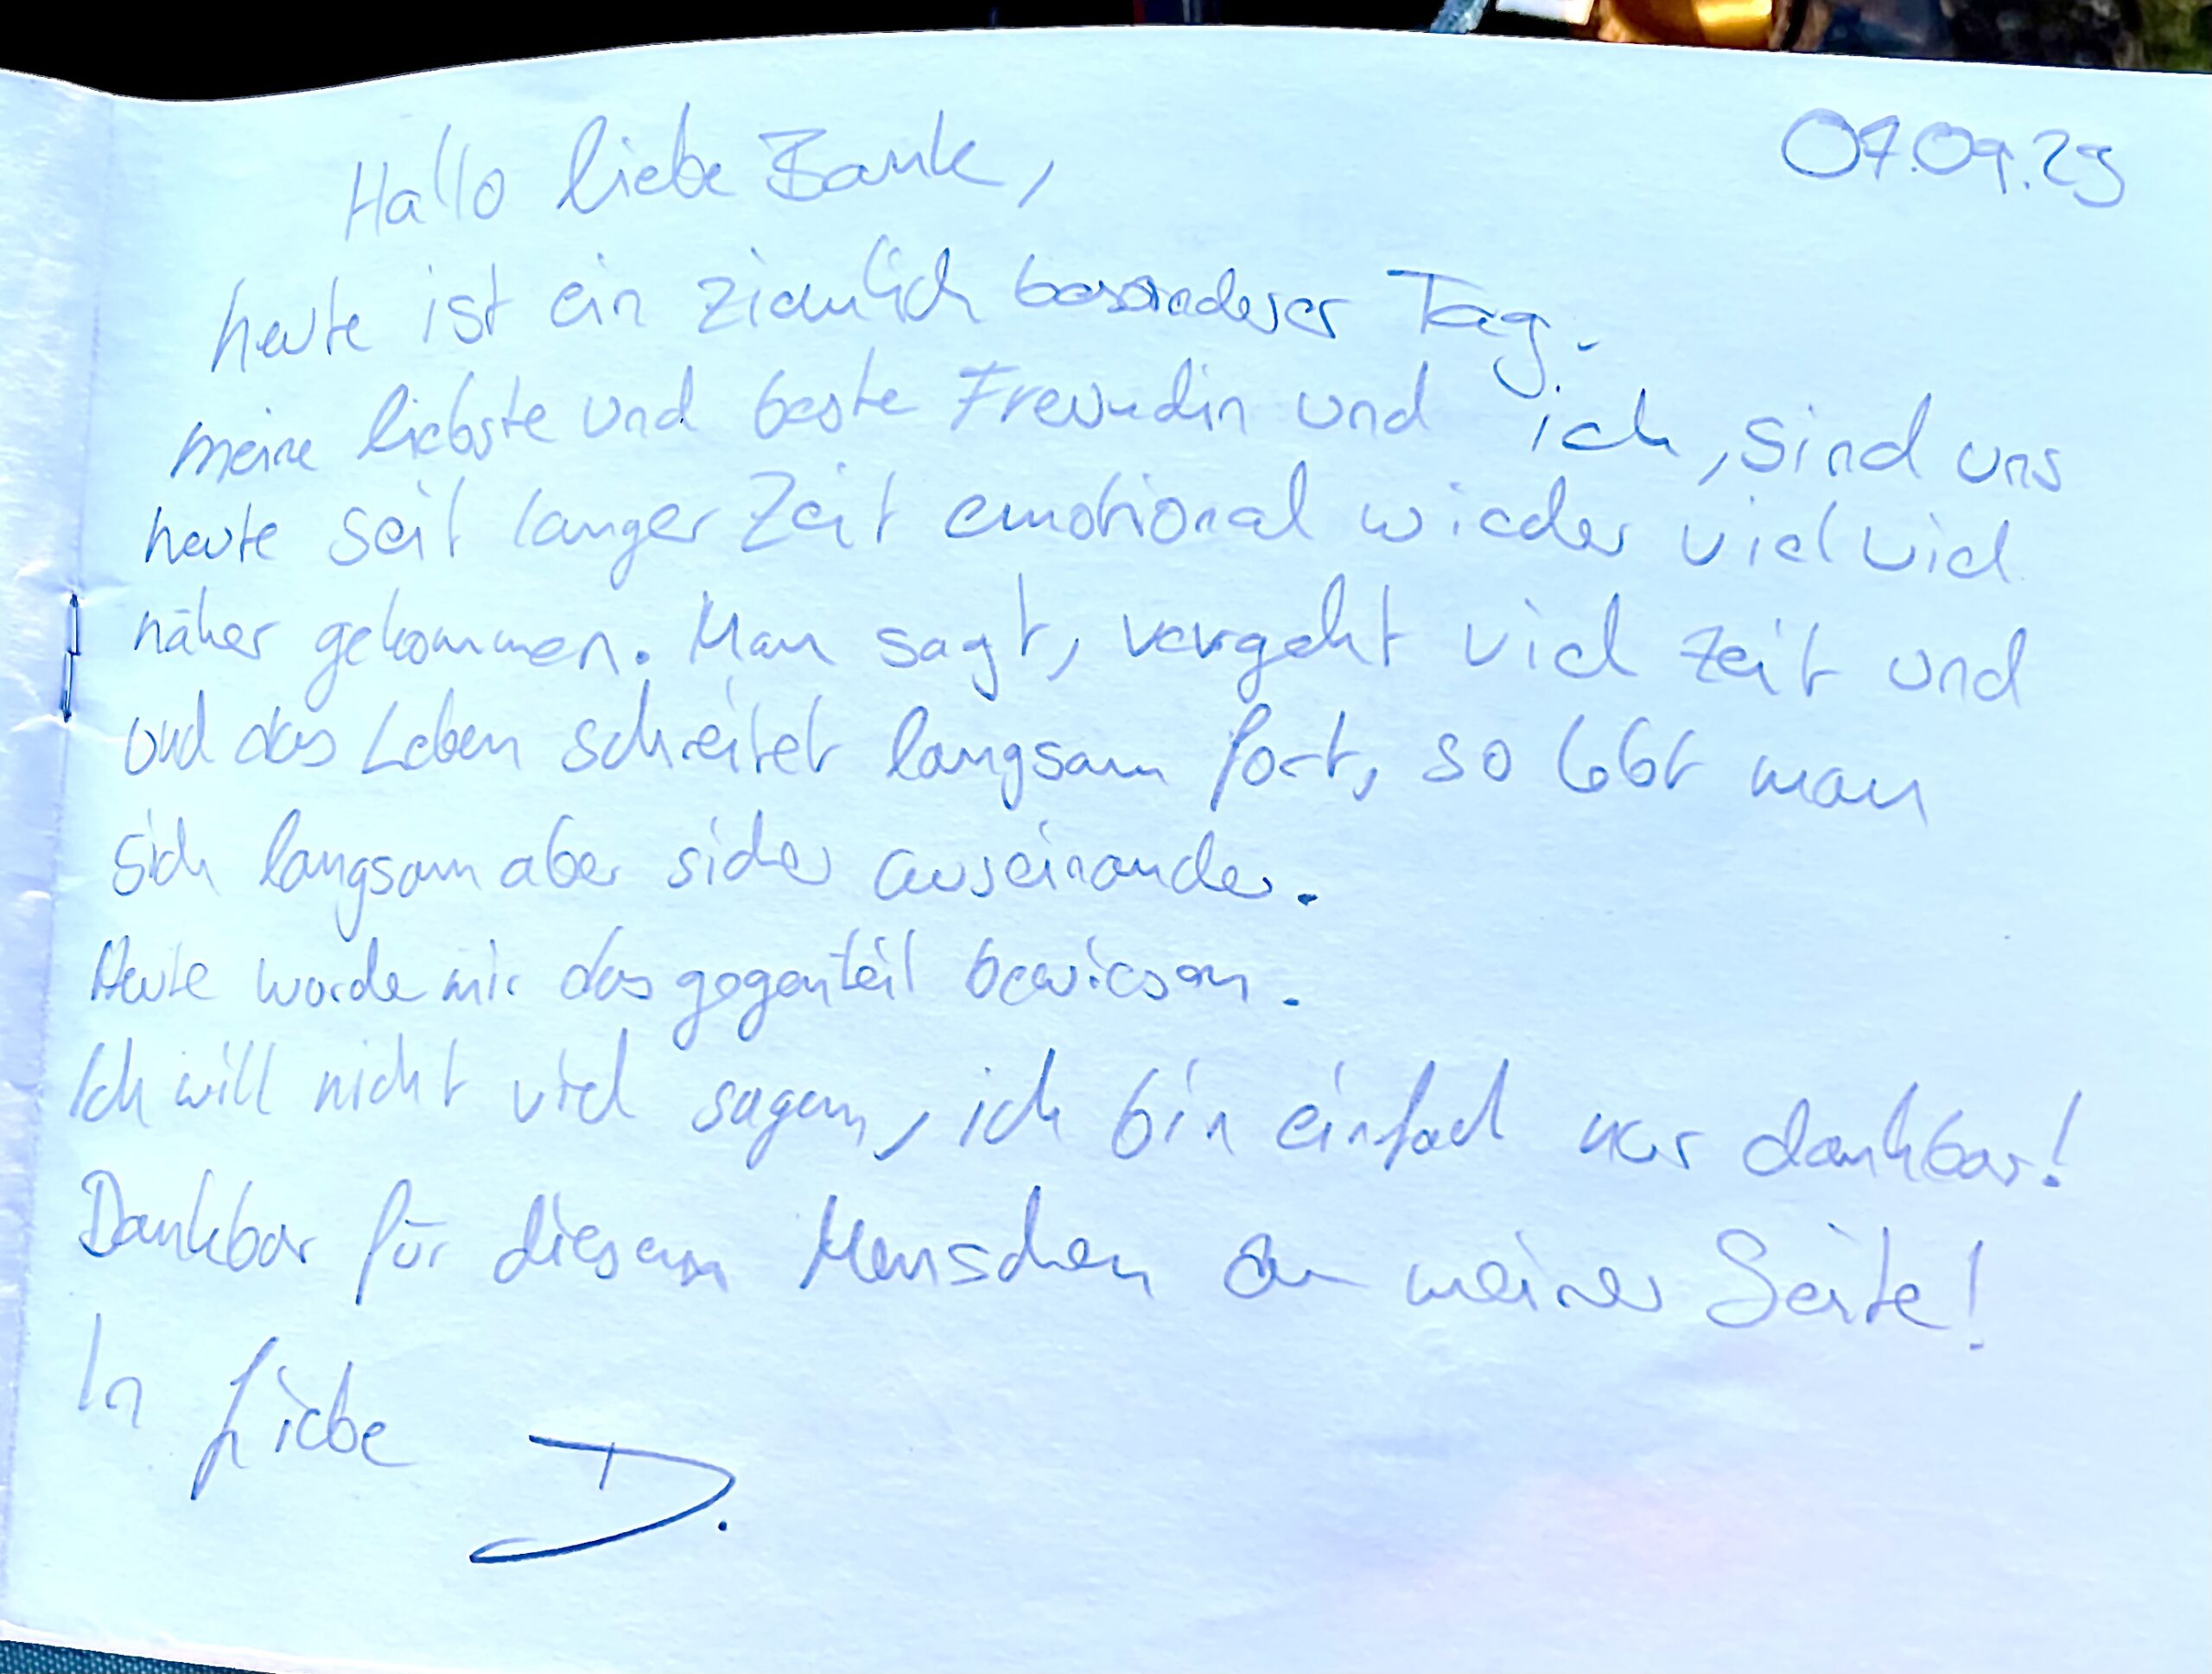 07.09.25
Hallo liebe Bank,
heute ist ein ziemlich besonderer Tag.
meine liebste und beste Freundin und ich, sind uns
heute seit langer Zeit emotional wieder viel viel
näher gekommen. Man sagt, vergeht viel Zeit und
und das Leben schreitet langsam fort, so lebt man
sich langsam aber sicher auseinander.
Heute wurde mir das gegenteil bewiesen.
Ich will nicht viel sagen, ich bin einfach nur dankbar!
Dankbar für diesen Menschen an meiner Seite!
In Liebe
D.